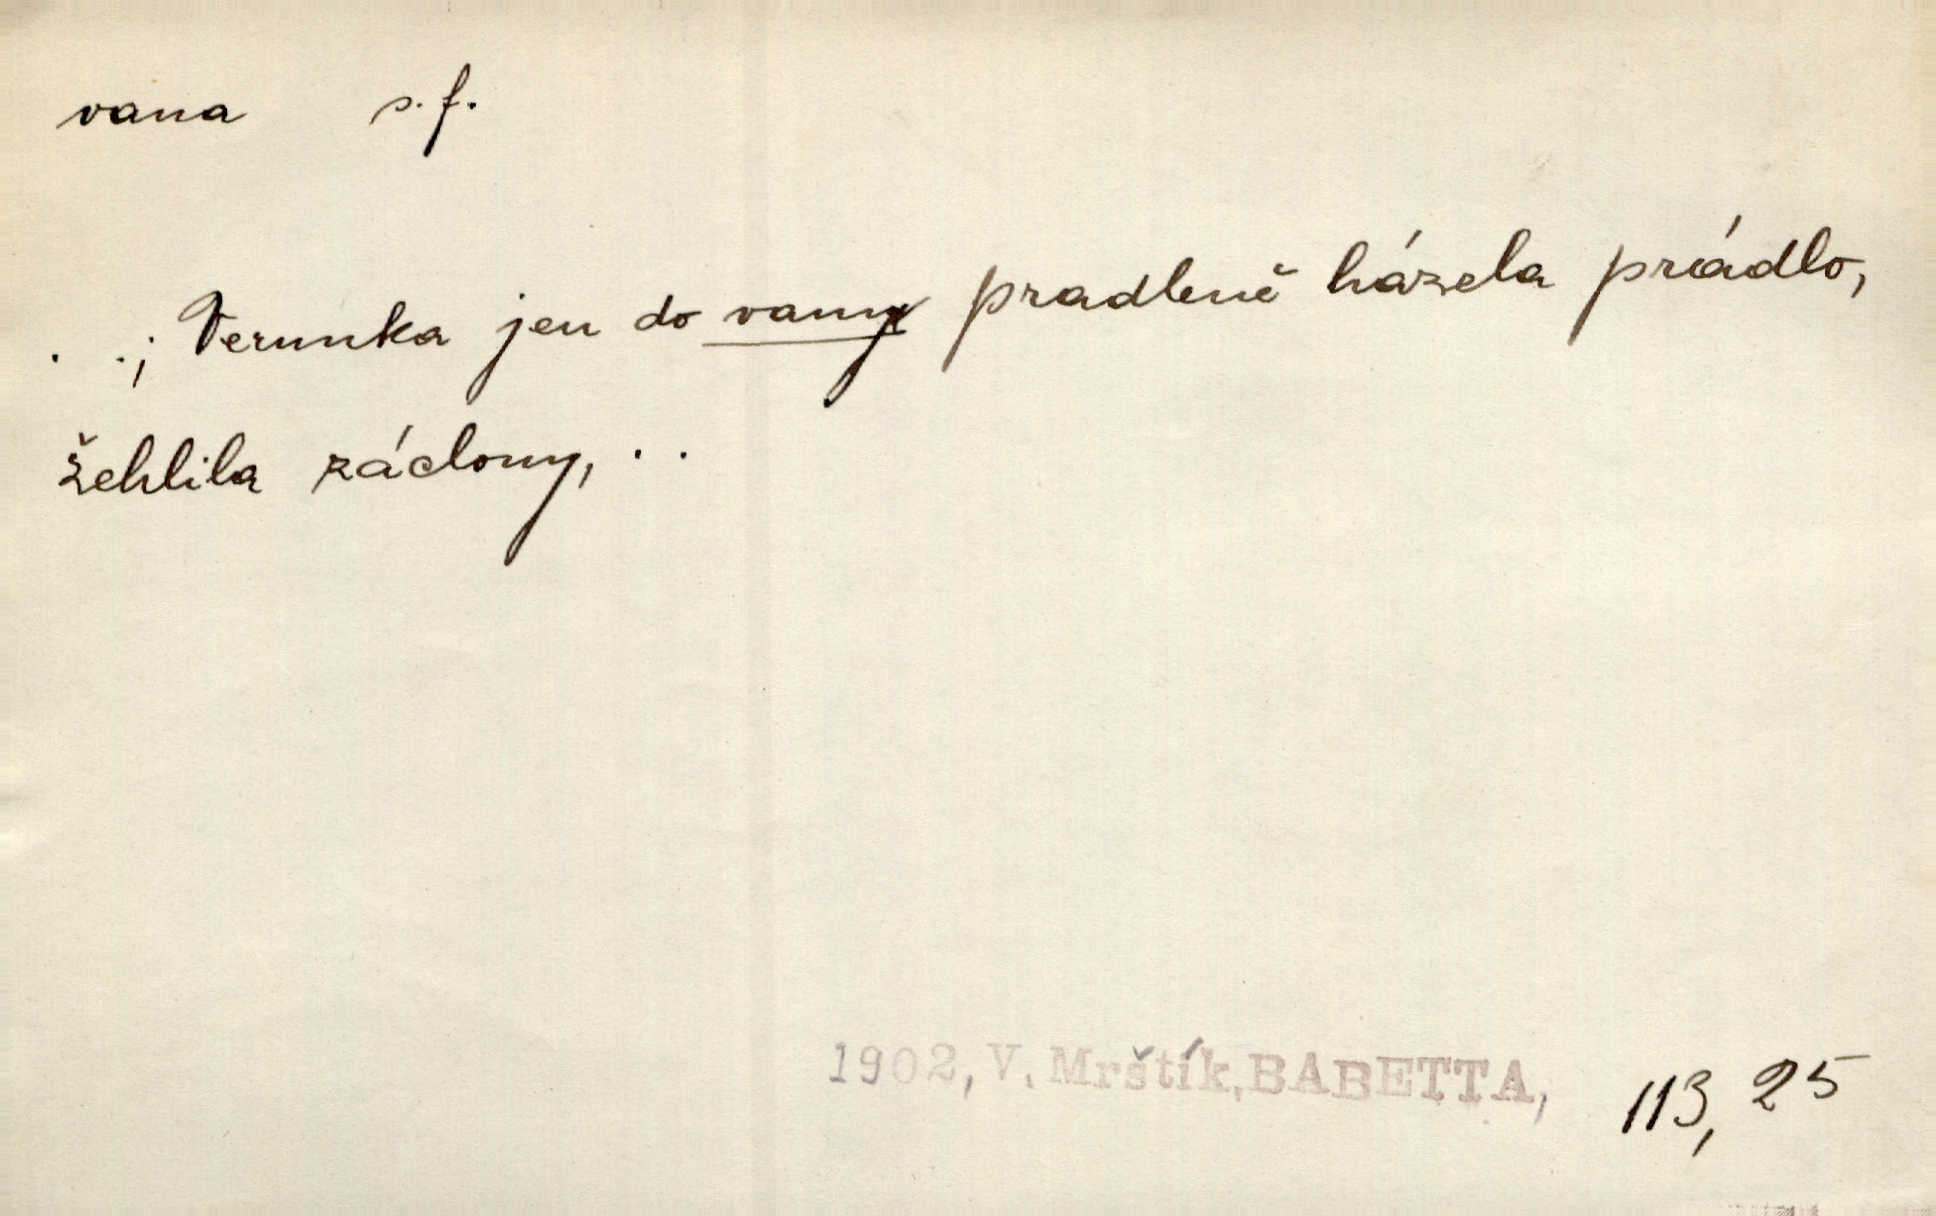 vana s. f.
. .; Verunka jen do vany pradleně házela prádlo,
žehlila záclony, . .
1902, V. Mrštík, BABETTA, 113, 25